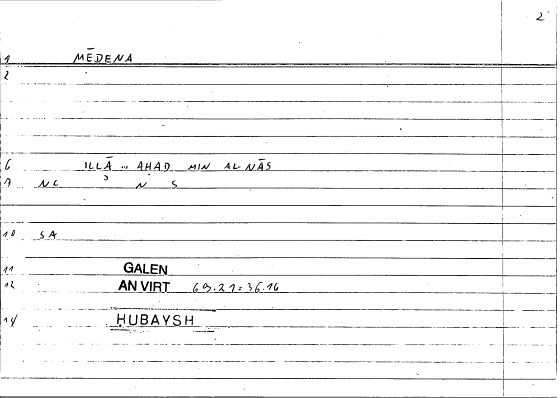 2
1 MĒDENA
2
6 ILLĀ ... AḤAD MIN AL-NĀS
7 NC N S
10 SA
11 GALEN
12 AN VIRT 69.21=36.16
14 ḤUBAYSH